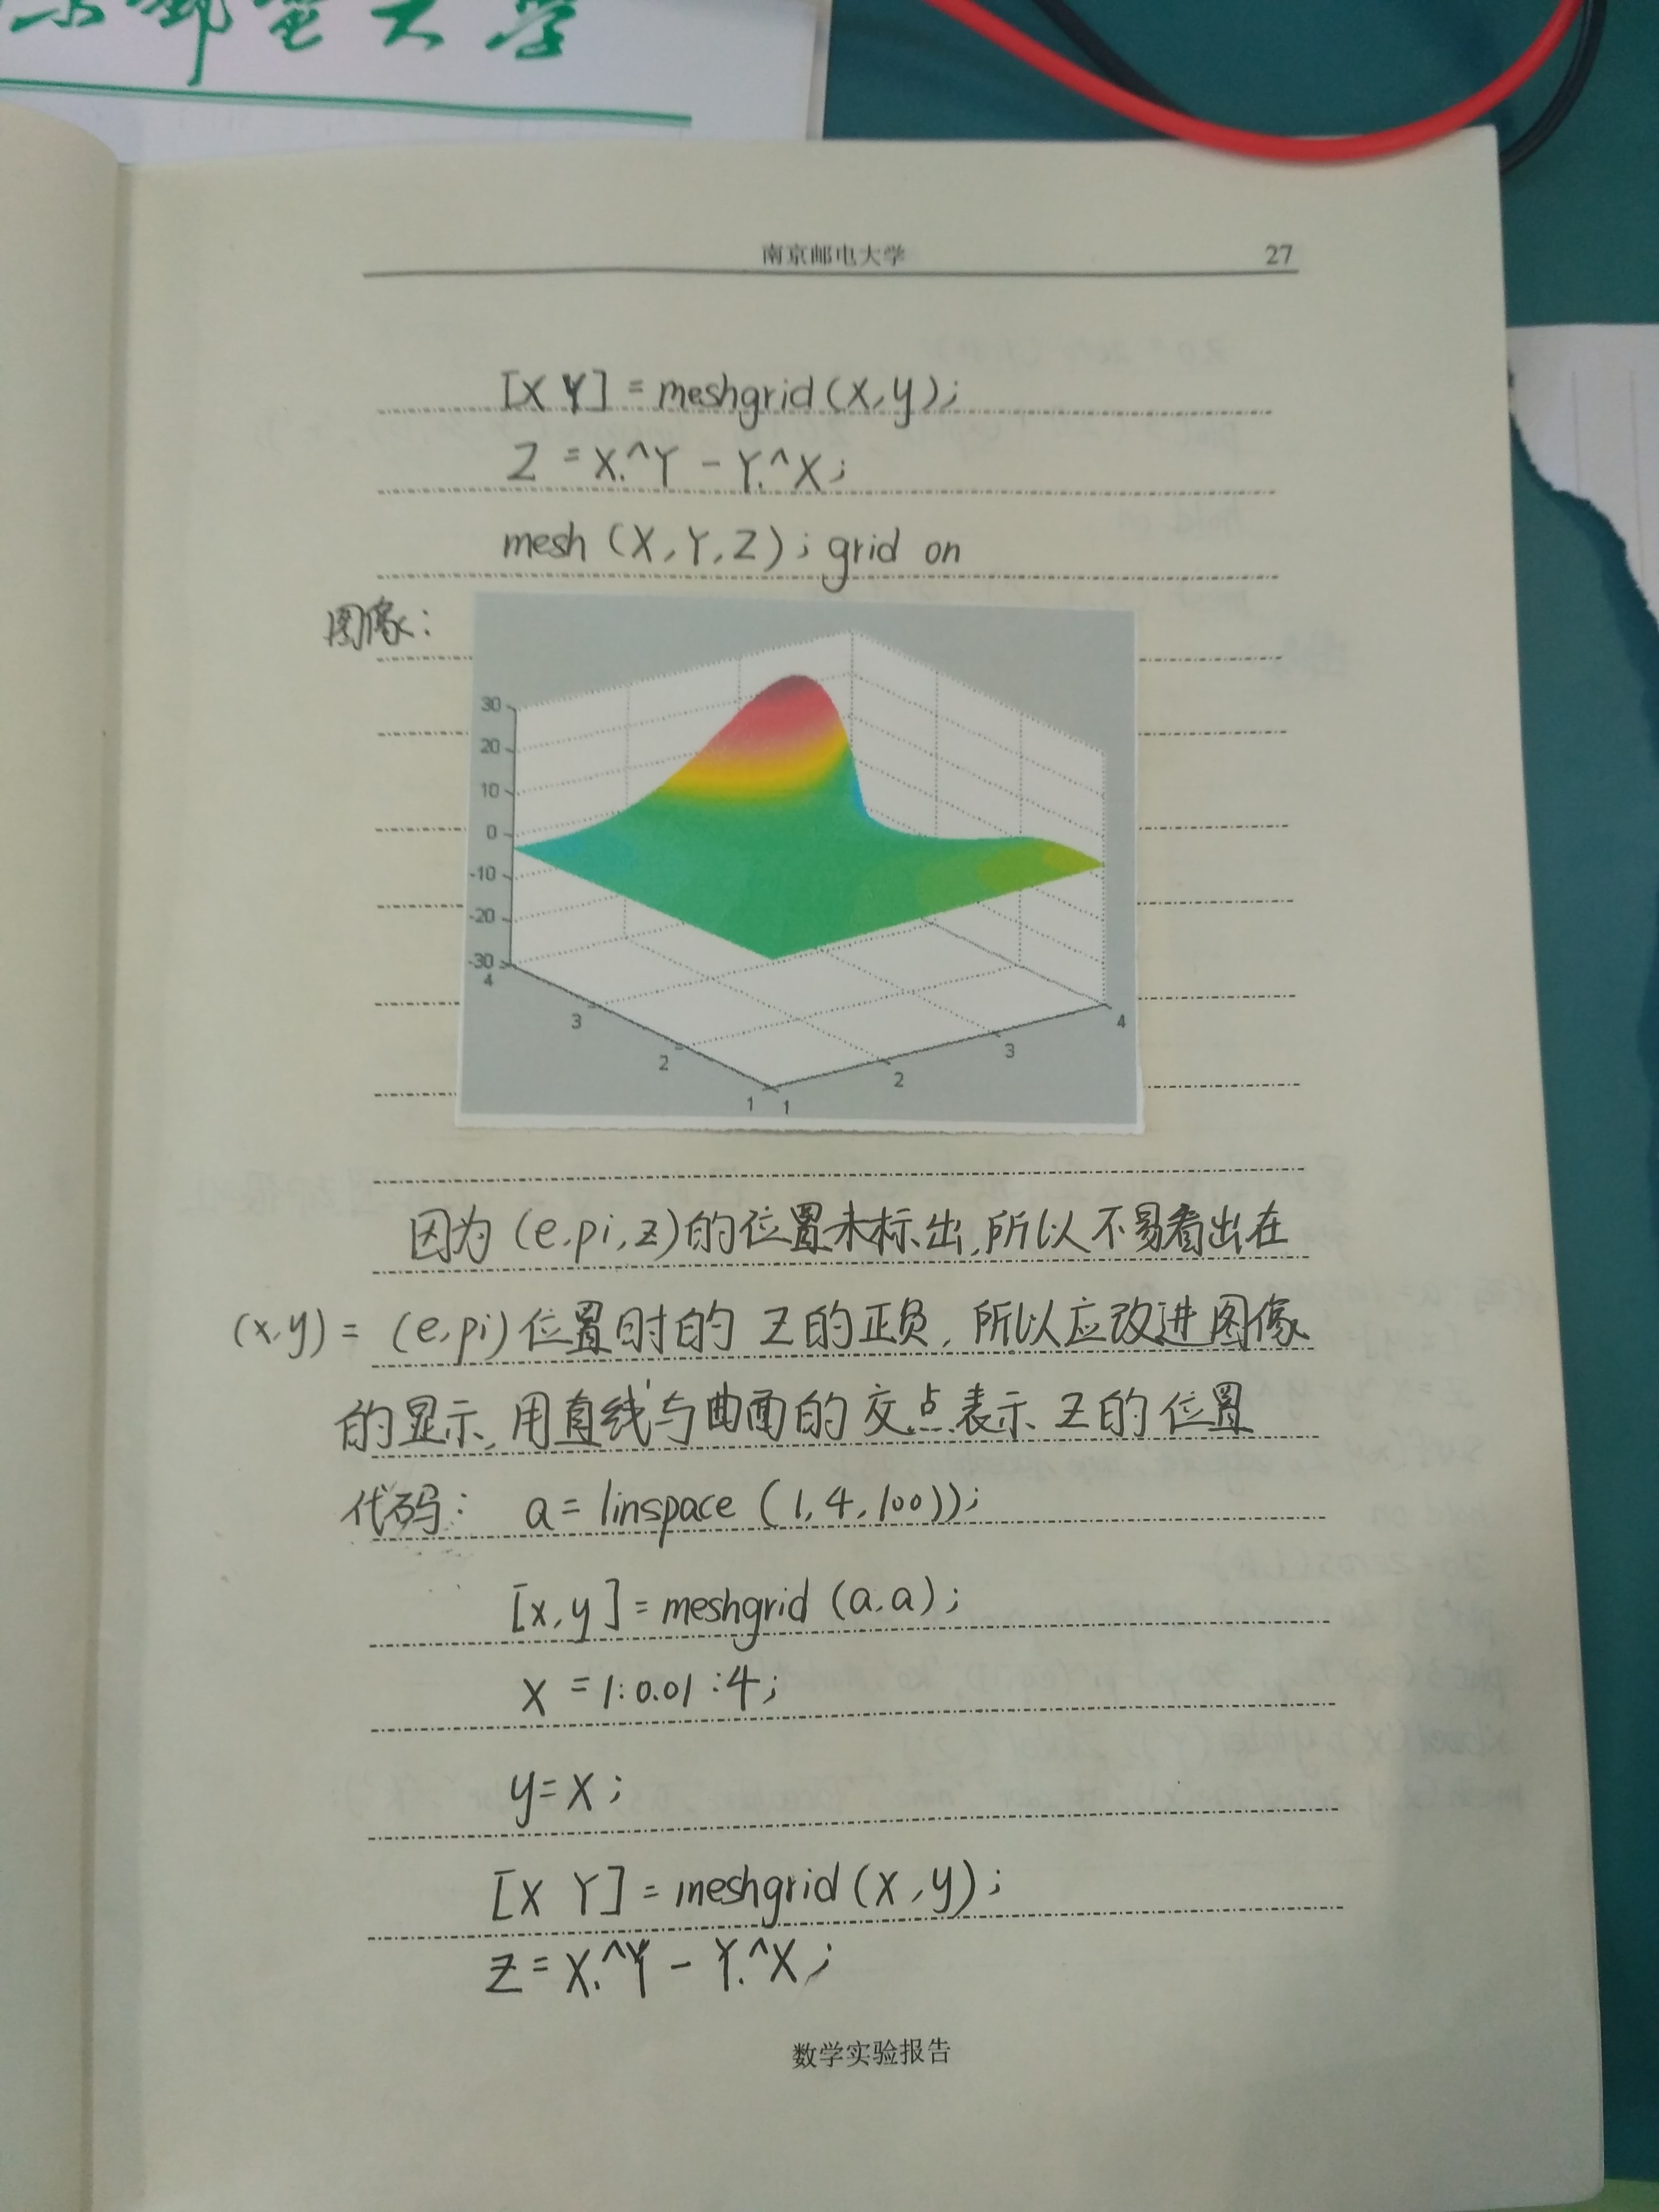 大学
南京邮电大学 27
[X Y] = meshgrid(x,y);
Z = X.^Y - Y.^X;
mesh (X,Y,Z); grid on
图像:
30
20
10
0
-10
-20
-30
4
3
2
1
1
2
3
4
因为(e,pi,z)的位置未标出,所以不易看出在
(x,y) = (e,pi)位置时的 Z的正负,所以应改进图像
的显示,用直线与曲面的交点表示 Z的位置
代码: a = linspace (1,4,100));
[x,y] = meshgrid (a,a);
x = 1:0.01:4;
y=x;
[X Y] = meshgrid(x,y);
Z = X.^Y - Y.^X;
数学实验报告